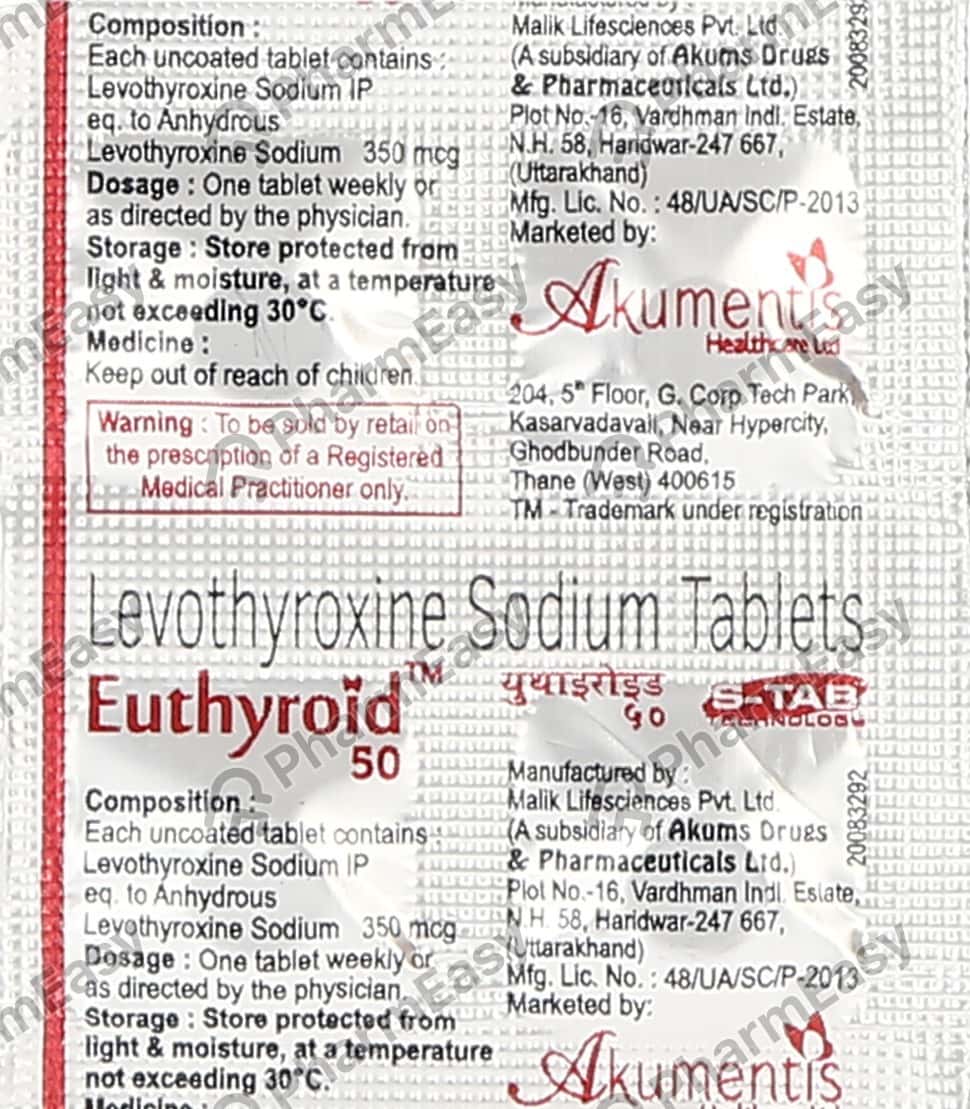 Composition :
Each uncoated tablet contains :
Levothyroxine Sodium IP
eq. to Anhydrous
Levothyroxine Sodium 350 mcg
Dosage : One tablet weekly or
as directed by the physician.
Storage : Store protected from
light & moisture, at a temperature
not exceeding 30°C.
Medicine :
Keep out of reach of children.
Warning : To be sold by retail on
the prescription of a Registered
Medical Practitioner only.
Manufactured by :
Malik Lifesciences Pvt. Ltd.
(A subsidiary of Akums Drugs
& Pharmaceuticals Ltd.)
Plot No.-16, Vardhman Indl. Estate,
N.H. 58, Haridwar-247 667,
(Uttarakhand)
Mfg. Lic. No. : 48/UA/SC/P-2013
Marketed by:
Akumentis
Healthcare Ltd
204, 5th Floor, G. Corp Tech Park,
Kasarvadavali, Near Hypercity,
Ghodbunder Road,
Thane (West) 400615
TM - Trademark under registration
2008329
Levothyroxine Sodium Tablets
Euthyroid™
50
युथाइरोइड
५०
S-TAB
TECHNOLOGY
Composition :
Each uncoated tablet contains :
Levothyroxine Sodium IP
eq. to Anhydrous
Levothyroxine Sodium 350 mcg
Dosage : One tablet weekly or
as directed by the physician.
Storage : Store protected from
light & moisture, at a temperature
not exceeding 30°C.
Medicine :
Manufactured by :
Malik Lifesciences Pvt. Ltd.
(A subsidiary of Akums Drugs
& Pharmaceuticals Ltd.)
Plot No.-16, Vardhman Indl. Estate,
N.H. 58, Haridwar-247 667,
(Uttarakhand)
Mfg. Lic. No. : 48/UA/SC/P-2013
Marketed by:
Akumentis
20083292
PharmEasy